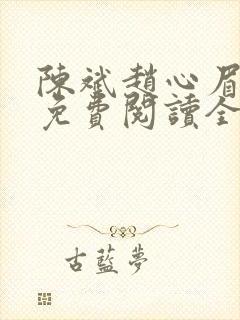 陳斌趙心眉
免費閱讀全
古藍夢